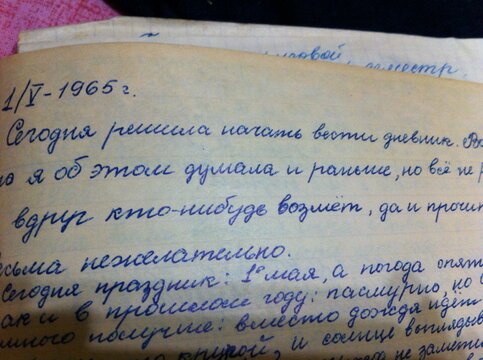 1/V-1965г.
Сегодня решила начать вести дневник.
я об этом думала и раньше, но всё не
вдруг кто-нибудь возмёт, да и прочит
нежелательно.
Сегодня праздник: 1е мая, а погода опят
и в прошлом году: пасмурно, но
получше: вместо дождя идёт
крупой, и солнце выглядыв
не замети